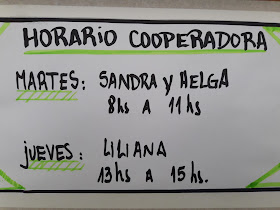 HORARIO COOPERADORA
MARTES: SANDRA y HELGA
8hs A 11hs
JUEVES: LILIANA
13hs A 15hs.